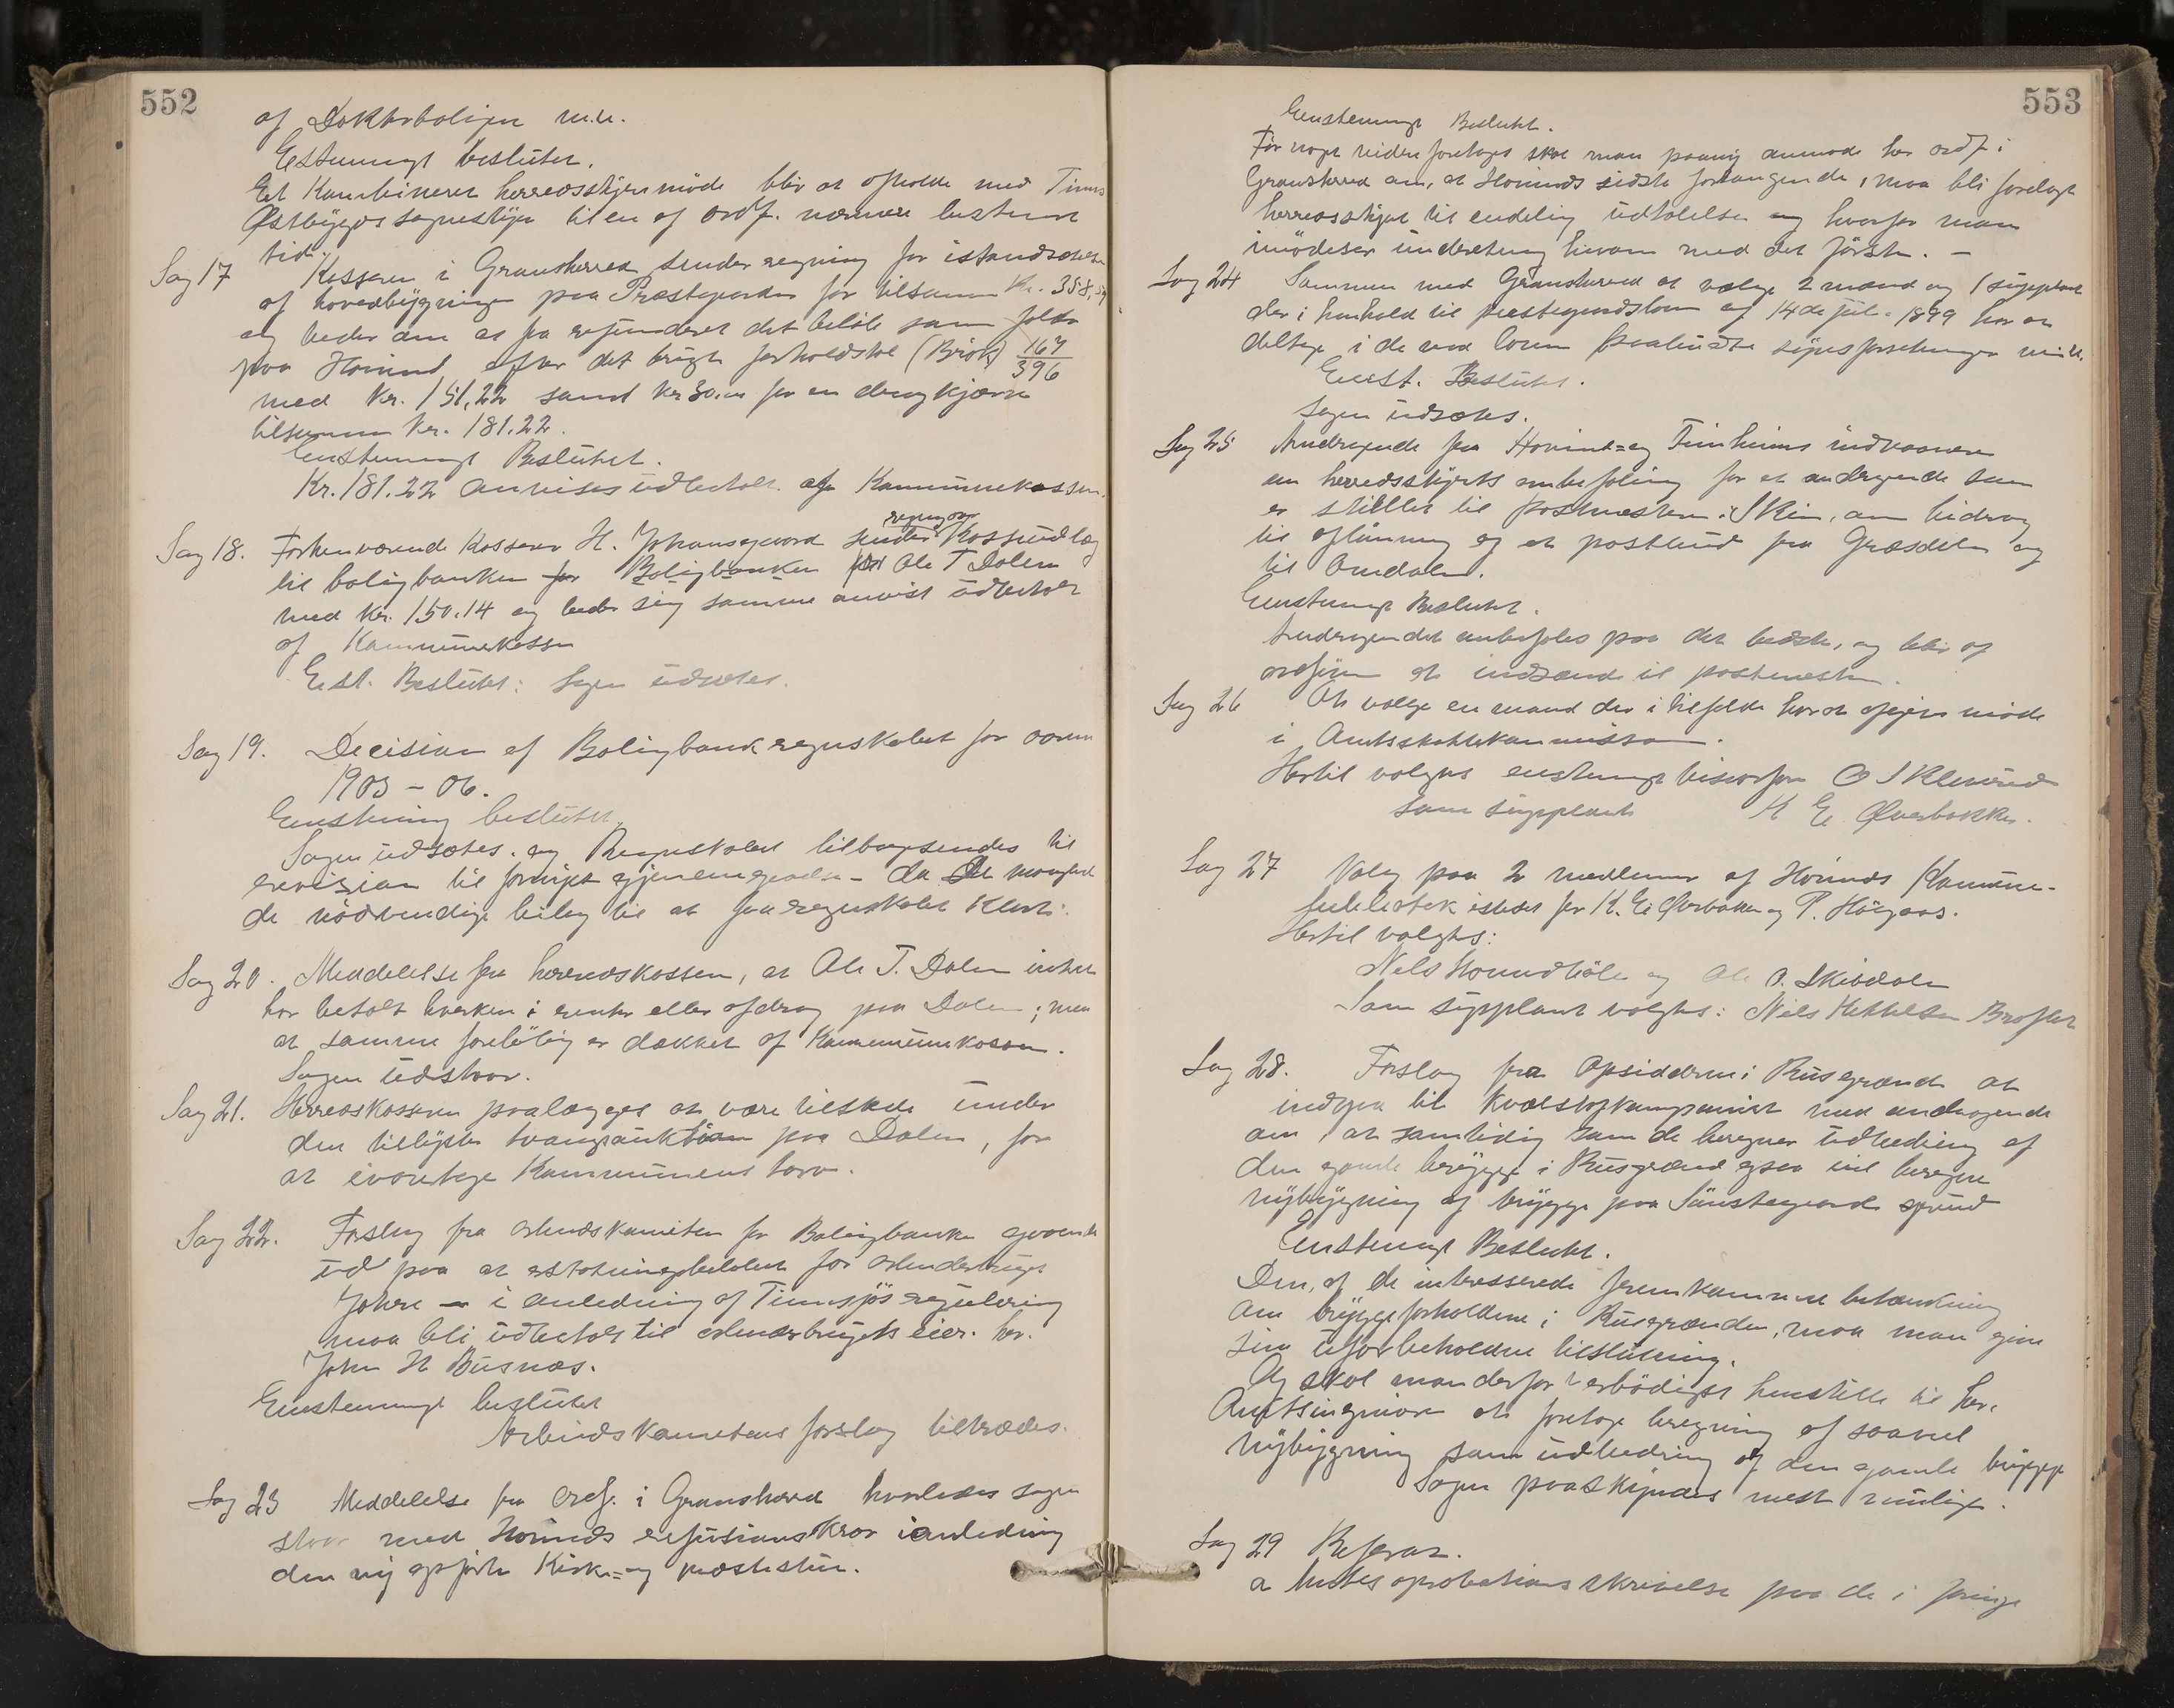 552
af Doktorboligen m.v.
Estemmigt besluttet.
Et Kombineret herredsstyremöde blir at afholde med Tinns
Østbygds sognestyre til en af ordf. nærmere bestemt
tid.
Sag 17 Kassern i Gransherred sender regning for istandsættelse
af hovedbygningen paa Præstegaarden for tilsammen Kr. 358,59
og beder om at faa refunderet det beløb som falder
paa Hovind efter det brugte forholdstal (Brök) 167/396
med Kr. 151,22 samt kr 30.00 for en
tilsammen Kr. 181.22.
Enstemmigt Besluttet.
Kr. 181.22 anvises udbetalt af Kommunekassen.
Sag 18. Forhenværende Kasserer H. Johansgaard sender regning over Kasseudlæg
til boligbanken for Boligbanken Ole T Dalen
med Kr. 150.14 og beder sig samme anvist udbetalt
af Kommunekassen
Enst. Besluttet: Sagen udsættes.
Sag 19. Decision af Boligbankregnskabet for aarene
1905 - 06.
Enstemmig besluttet
Sagen udsættes. og Regnskabet tilbagesendes til
revision til fornyet gjennemgaaelse - da det manglede
de nödvendige bilag til at faa regnskabet klart.
Sag 20. Meddelelse fra herredskassen, at Ole T. Dalen intet
har betalt hverken i renter eller afdrag paa Dalen; men
at samme foreløbig er dækket af Kommunekassen.
Sagen udstaar.
Sag 21. Herredskassern paalægges at være tilstede under
den tillyste tvangsauktion paa Dalen, for
at ivaretage Kommunens tarv.
Sag 22. Forslag fra Arbeidskomiteen for Boligbanken gaaende
ud paa at erstatningsbeløbet for Arbeiderbruget
i anledning af Tinnsjös regulering
maa bli udbetalt til arbeiderbrugets eier. hr.
John H Busnæs.
Enstemmigt besluttet
Arbeidskomiteens forslag tiltrædes.
Sag 23 Meddelelse fra Ordf. i Gransherred hvorledes sagen
staar med Hovinds refusionskrav i anledning
den ny opførte Kirke= og præstestue.
553
Enstemmigt Besluttet.
Før noget videre foretages skal man paany anmode hr ordf i
Gransherred om, at Hovinds sidste forlangende, maa bli forelagt
herredsstyret til endelig udtalelse og hvorfor man
imödeser underetning herom med det förste. -
Sag 24 Sammen med Gransherred at vælge 2 mænd og 1 supleant
der i henhold til præstegaardsloven af 14de juli 1899 har at
deltage i de ved loven paabudte synsforretninger m.v.
Enst. Besluttet.
Sagen udsættes.
Sag 25 Andragende fra Hovind= og Tinnheims indvaanere
om herredsstyrets anbefaling for et andragende som
er stillet til Postmesteren i Skien, om bidrag
til aflønning af et postbud fra Græsdalen og
til Omdalen.
Enstemmigt Besluttet.
Andragendet anbefales paa det bedste, og blir af
ordføren at indsende til postmesteren.
Sag 26 At vælge en mand der i tilfælde har at afgive møde
i Amtsskattekommissionen.
Hertil valgtes enstemmigt O J Klevrud
som supleant K E Øverbakken.
Sag 27 Valg paa 2 medlemmer af Hovinds Kommune-
bibliotek istedet for K. E. Øverbakken og P. Haugaas.
Hertil valgtes:
Nils og Ole O. Skirdalen
Som supplant valgtes: Nils Kittelsen
Sag 28. Forslag fra Opsidderne i Busgrænd at
indgaa til Kvælstofkompaniet med andragende
om, at samtidig som de beregner udbedring af
den gamle brygge i Busgrænd ogsaa vil beregne
nybygning af brygge paa
Enstemmigt Besluttet.
Den, af de interesserede fremkomne betænkning
om bryggeforholdene i Busgrænden, maa man give
sin uforbeholdne tilslutning.
Og skal man derfor ærbödigst henstille til hr.
Amtsingeniøren at foretage beregning af saavel
Nybygning som udbedring af den gamle brygge
Sagen paaskyndes mest mulig.
Sag 29 Referat.
a Amtets aprobationsskrivelse paa de i forrige